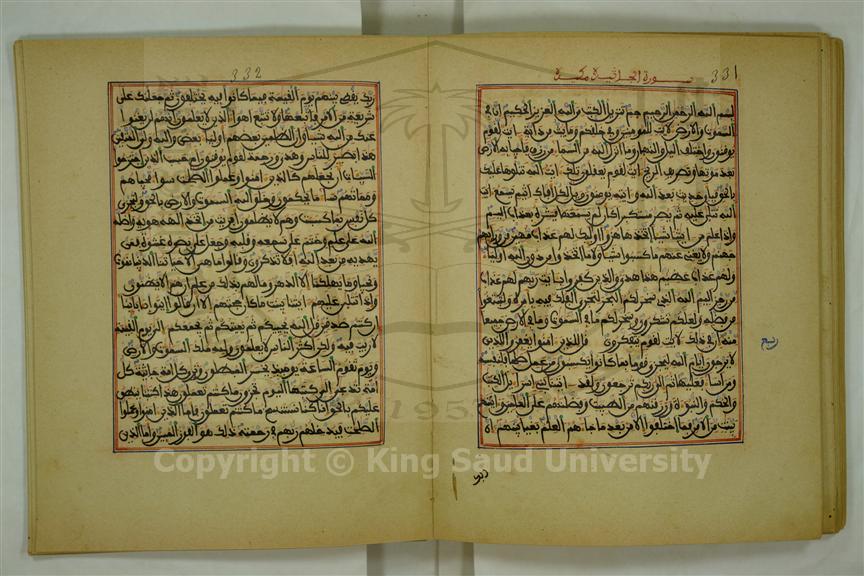 سورة الجاثية مكية 331
بسم الله الرحمن الرحيم حم تنزيل الكتب من الله العزيز الحكيم ان في
السموت والارض لايت للمومنين وفي خلقكم وما يبث من دابة ايت لقوم
يوقنون واختلف اليل والنهار وما انزل الله من السما من رزق فاحيا به الارض
بعد موتها وتصريف الريح ايت لقوم يعقلون تلك ايت الله نتلوها عليك
بالحق فباي حديث بعد الله وايته يومنون ويل لكل افاك اثيم يسمع ايت
الله تتلى عليه ثم يصر مستكبرا كان لم يسمعها فبشره بعذاب اليم
واذا علم من ايتنا شيا اتخذها هزوا اوليك لهم عذاب مهين من ورايهم
جهنم ولا يغني عنهم ما كسبوا شيا ولا ما اتخذوا من دون الله اوليا
ولهم عذاب عظيم هذا هدى والذين كفروا بايت ربهم لهم عذاب
من رجز اليم الله الذي سخر لكم البحر لتجري الفلك فيه بامره ولتبتغوا
من فضله ولعلكم تشكرون وسخر لكم ما في السموت وما في الارض جميعا
منه ان في ذلك لايت لقوم يتفكرون قل للذين امنوا يغفروا للذين
ربع
لا يرجون ايام الله ليجزي قوما بما كانوا يكسبون من عمل صلحا فلنفسه
ومن اسا فعليها ثم الى ربكم ترجعون ولقد اتينا بني اسرايل الكتب
والحكم والنبوة ورزقنهم من الطيبت وفضلنهم على العلمين واتينهم
بينت من الامر فما اختلفوا الا من بعد ما جاهم العلم بغيا بينهم ان
ربك
332
ربك يقضي بينهم يوم القيمة فيما كانوا فيه يختلفون ثم جعلنك على
شريعة من الامر فاتبعها ولا تتبع اهوا الذين لا يعلمون انهم لن يغنوا
عنك من الله شيا وان الظلمين بعضهم اوليا بعض والله ولي المتقين
هذا بصير للناس وهدى ورحمة لقوم يوقنون ام حسب الذين اجترحوا
السيات ان نجعلهم كالذين امنوا وعملوا الصلحت سوا محياهم
ومماتهم سا ما يحكمون وخلق الله السموت والارض بالحق ولتجزى
كل نفس بما كسبت وهم لا يظلمون افريت من اتخذ الهه هويه واضله
الله على علم وختم على سمعه وقلبه وجعل على بصره غشوة فمن
يهديه من بعد الله افلا تذكرون وقالوا ما هي الا حياتنا الدنيا نموت
ونحيا وما يهلكنا الا الدهر وما لهم بذلك من علم ان هم الا يظنون
واذا تتلى عليهم ايتنا بينت ما كان حجتهم الا ان قالوا ايتوا بابائنا
ان كنتم صدقين قل الله يحييكم ثم يميتكم ثم يجمعكم الى يوم القيمة
لا ريب فيه ولكن اكثر الناس لا يعلمون ولله ملك السموت والارض
ويوم تقوم الساعة يوميذ يخسر المبطلون وترى كل امة جاثية كل
امة تدعى الى كتبها اليوم تجزون ما كنتم تعملون هذا كتبنا ينطق
عليكم بالحق انا كنا نستنسخ ما كنتم تعملون فاما الذين امنوا وعملوا
الصلحت فيدخلهم ربهم في رحمته ذلك هو الفوز المبين واما الذين
1957
Copyright © King Saud University